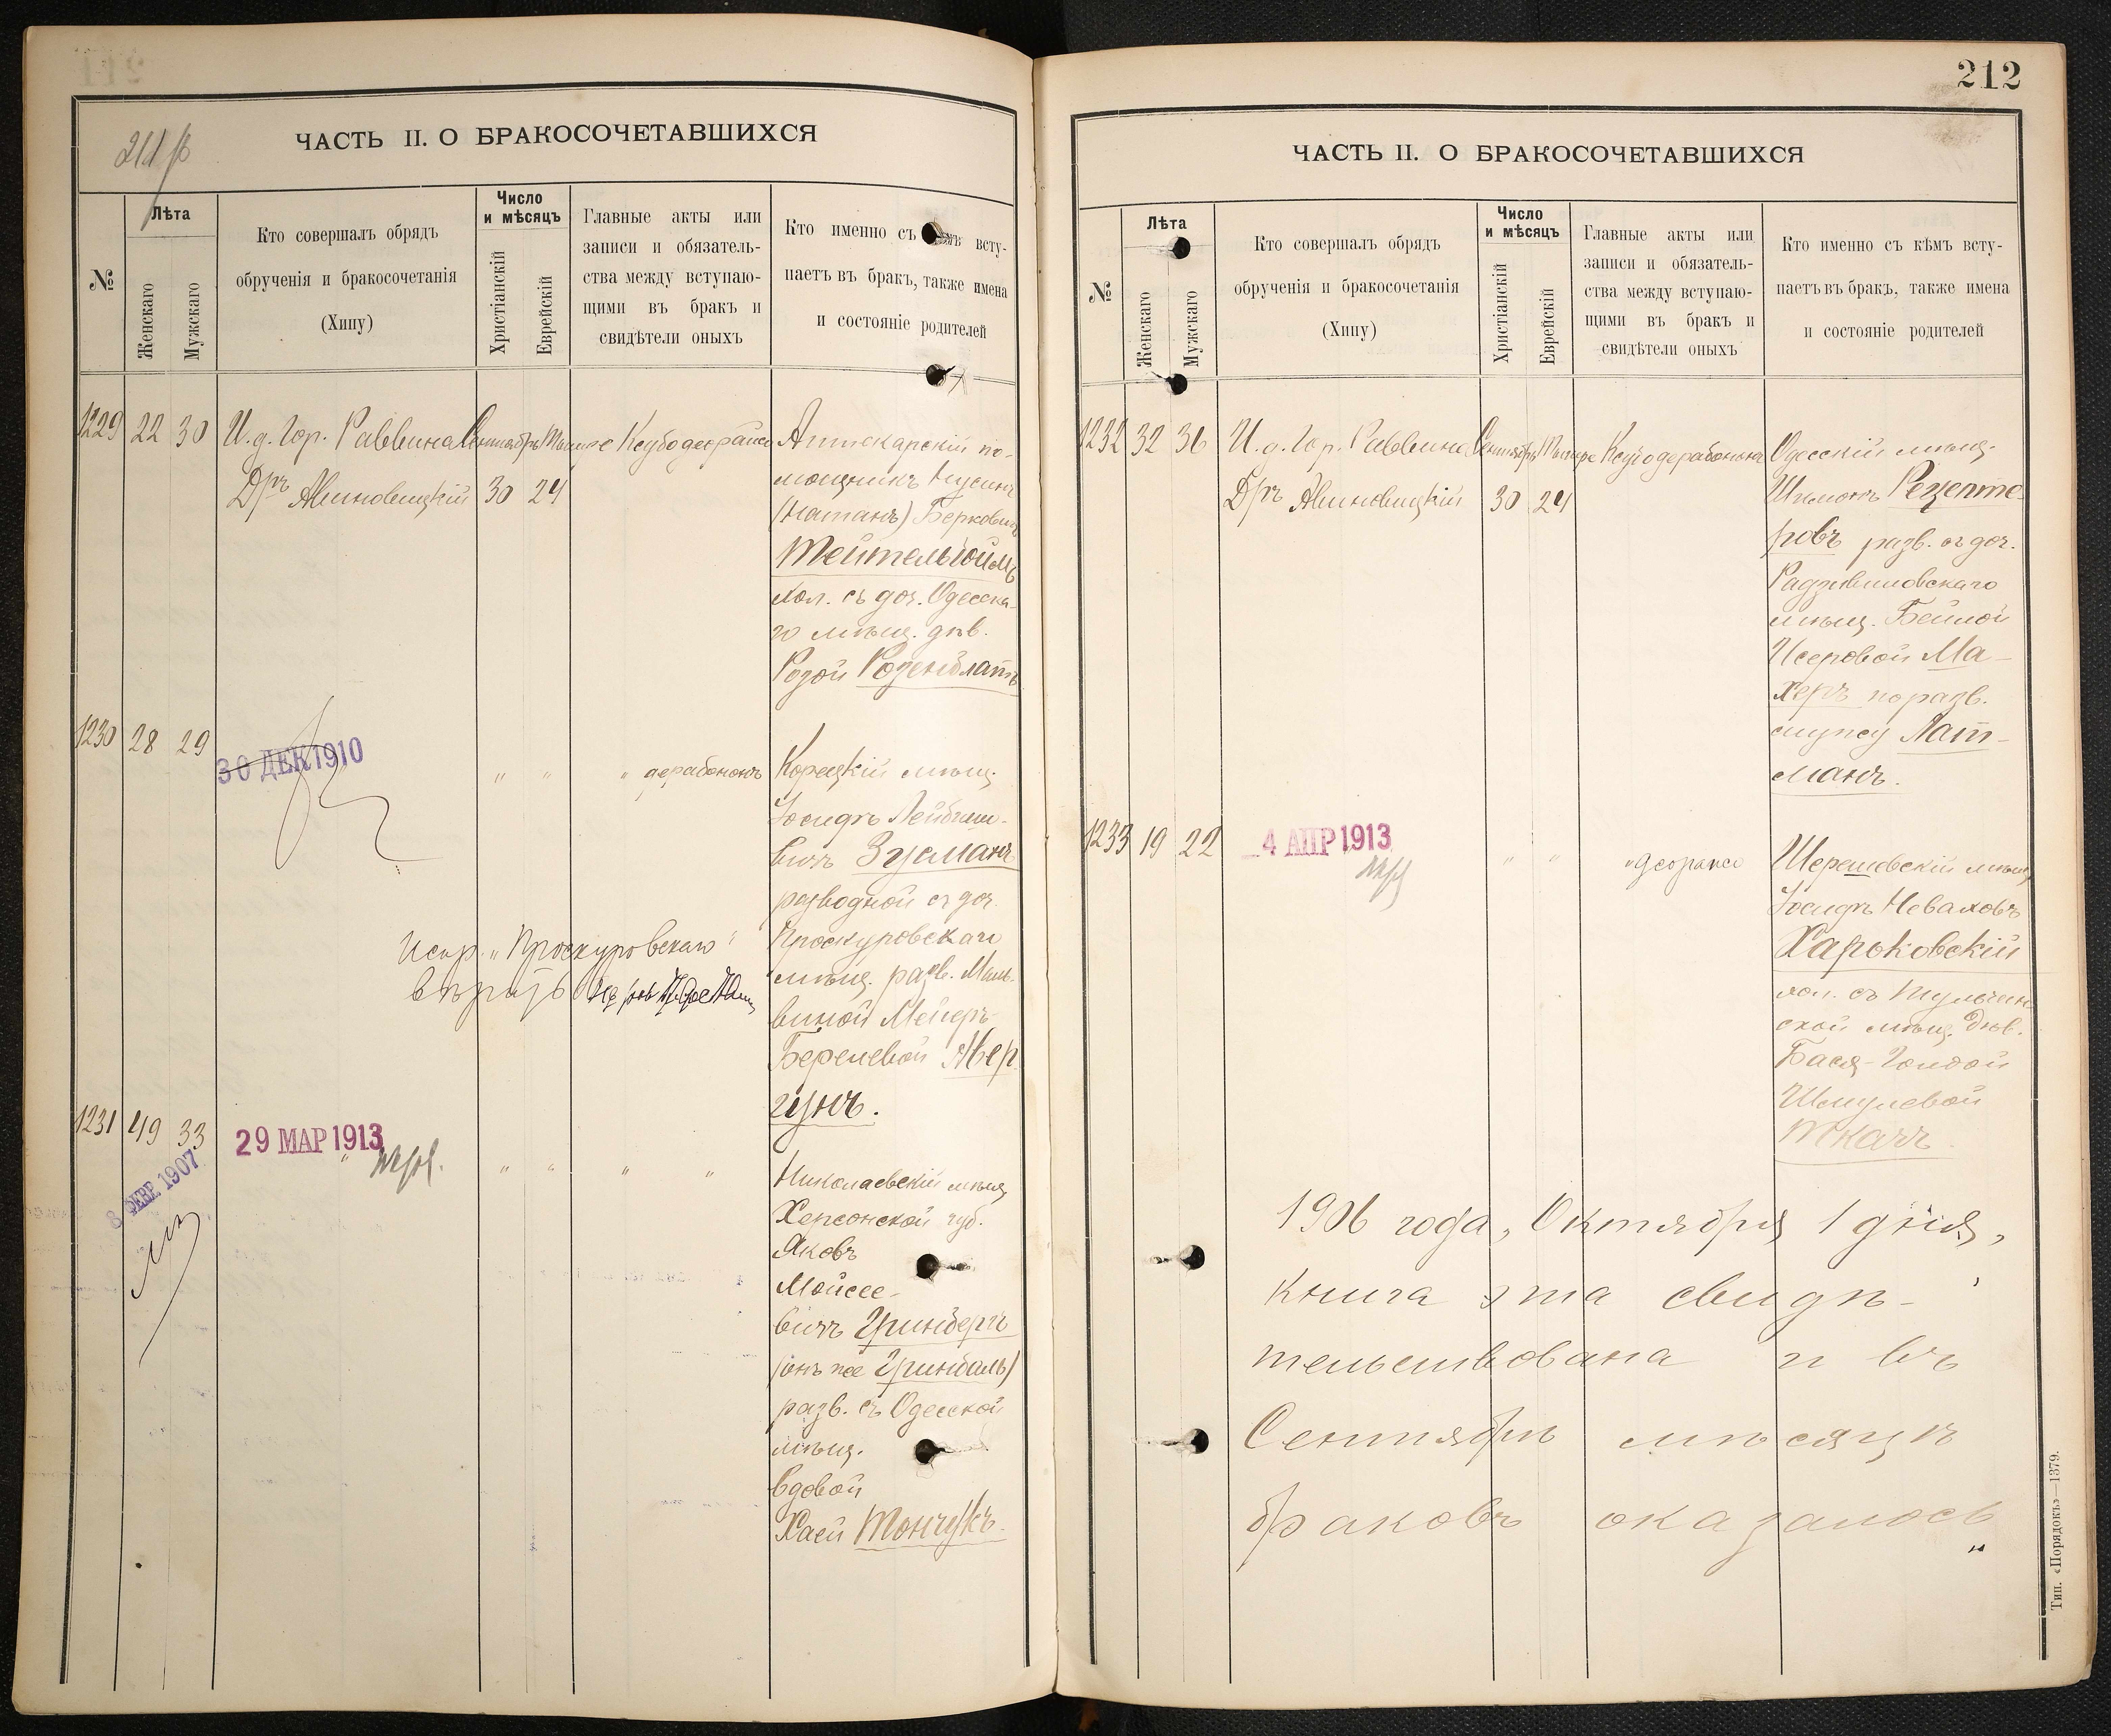 211
211 об
ЧАСТЬ II. О БРАКОСОЧЕТАВШИХСЯ
№
Лѣта
Женскаго
Мужскаго
Кто совершалъ обрядъ
обрученія и бракосочетанія
(Хипу)
Число
и мѣсяцъ
Христіанскій
Еврейскій
Главные акты или
записи и обязатель-
ства между вступаю-
щими въ бракъ и
свидѣтели оныхъ
Кто именно съ всту-
паетъ въ бракъ, также имена
и состояніе родителей
1229 22 30 И. д. Гор. Раввина Сентябрь Тишре Ксубо
Др. Авиновицкій 30 24
Аптекарскій по-
мощникъ Нусинъ
(Натанъ) Берковичъ
Тейтельбоймъ
хол. съ доч. Одесска-
го мѣщ. дѣв.
Розой Розенблатъ
1230 28 29
30 ДЕК 1910
" " " дерабононъ
Корецкій мѣщ.
Іосифъ Лейбиш-
вичъ Зусманъ
разводной съ доч.
Проскуровскаго
мѣщ. разв. Маль-
виной Мейеръ-
Берелевой Авер
гунъ.
Испр. "Проскуровскаго"
вѣрить
1231 49 33
29 МАР 1913
8 ФЕВР. 1907
" " " "
Николаевскій мѣщ.
Херсонской губ.
Яковъ
Мойсее-
вичъ Гринбергъ
(онъ же Гринбаль)
разв. съ Одесской
мѣщ.
вдовой
Хаей Тончукъ.
212
ЧАСТЬ II. О БРАКОСОЧЕТАВШИХСЯ
№
Лѣта
Женскаго
Мужскаго
Кто совершалъ обрядъ
обрученія и бракосочетанія
(Хипу)
Число
и мѣсяцъ
Христіанскій
Еврейскій
Главные акты или
записи и обязатель-
ства между вступаю-
щими въ бракъ и
свидѣтели оныхъ
Кто именно съ кѣмъ всту-
паетъ въ бракъ, также имена
и состояніе родителей
1232 32 36 И. д. Гор. Раввина Сентябрь Тишре Ксубодерабонона
Др. Авиновицкій 30 24
Одесскій мѣщ.
Шимонъ Рецепте-
ровъ разв. съ доч.
Радзивиловскаго
мѣщ. Бейлой
Исеровой Ма-
херъ по разв.
мужу Лат-
манъ.
1233 19 22
4 АПР 1913
" " "
Шерешевскій мѣщ.
Іосифъ Неваховъ
Харьковскій
хол. съ Тульчин
ской мѣщ. дѣв.
Бася-Голдой
Шмулевой
Ткачъ.
1906 года, Октября 1 дня,
книга эта свидѣ-
тельствована и въ
Сентябрѣ мѣсяцѣ
браковъ оказалось
Тип. «Порядокъ»—1379.